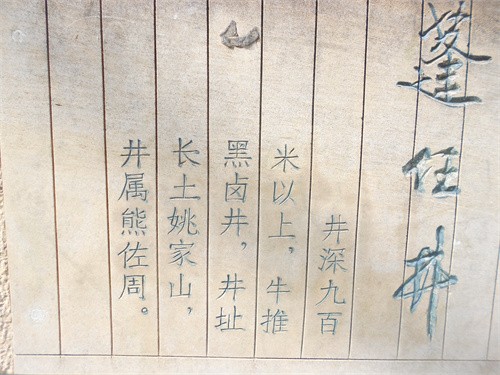 蓬任井
井深九百
米以上，牛推
黑卤井，井址
长土姚家山，
井属熊佐周。